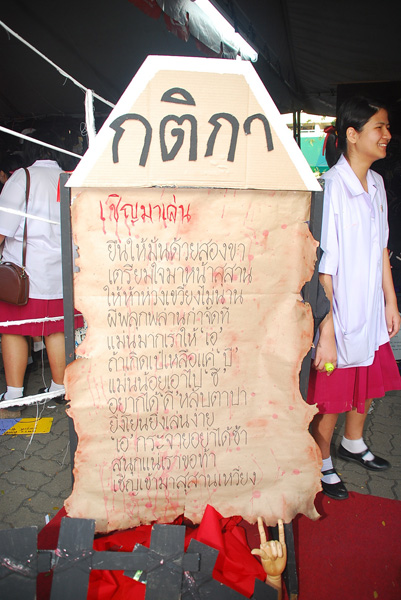 กติกา
เชิญมาเล่น
ยืนให้มั่นด้วยสองขา
เตรียมใจมาหน้าสุสาน
ให้ห้าห่วงเขวี้ยงไม่นาน
ผีพลุกพล่านกำจัดที
แม่นมากเราให้ 'เอ'
ถ้าเกิดเป๋เหลือแค่ 'บี'
แม่นน้อยเอาไป 'ซี'
อยากได้ 'ดี' หลับตาปา
ยิ่งโยนยิ่งเล่นง่าย
'เอ' กระจายอย่าได้ช้า
สนุกแน่เราขอท้า
เชิญเข้ามาสุสานเหวี่ยง